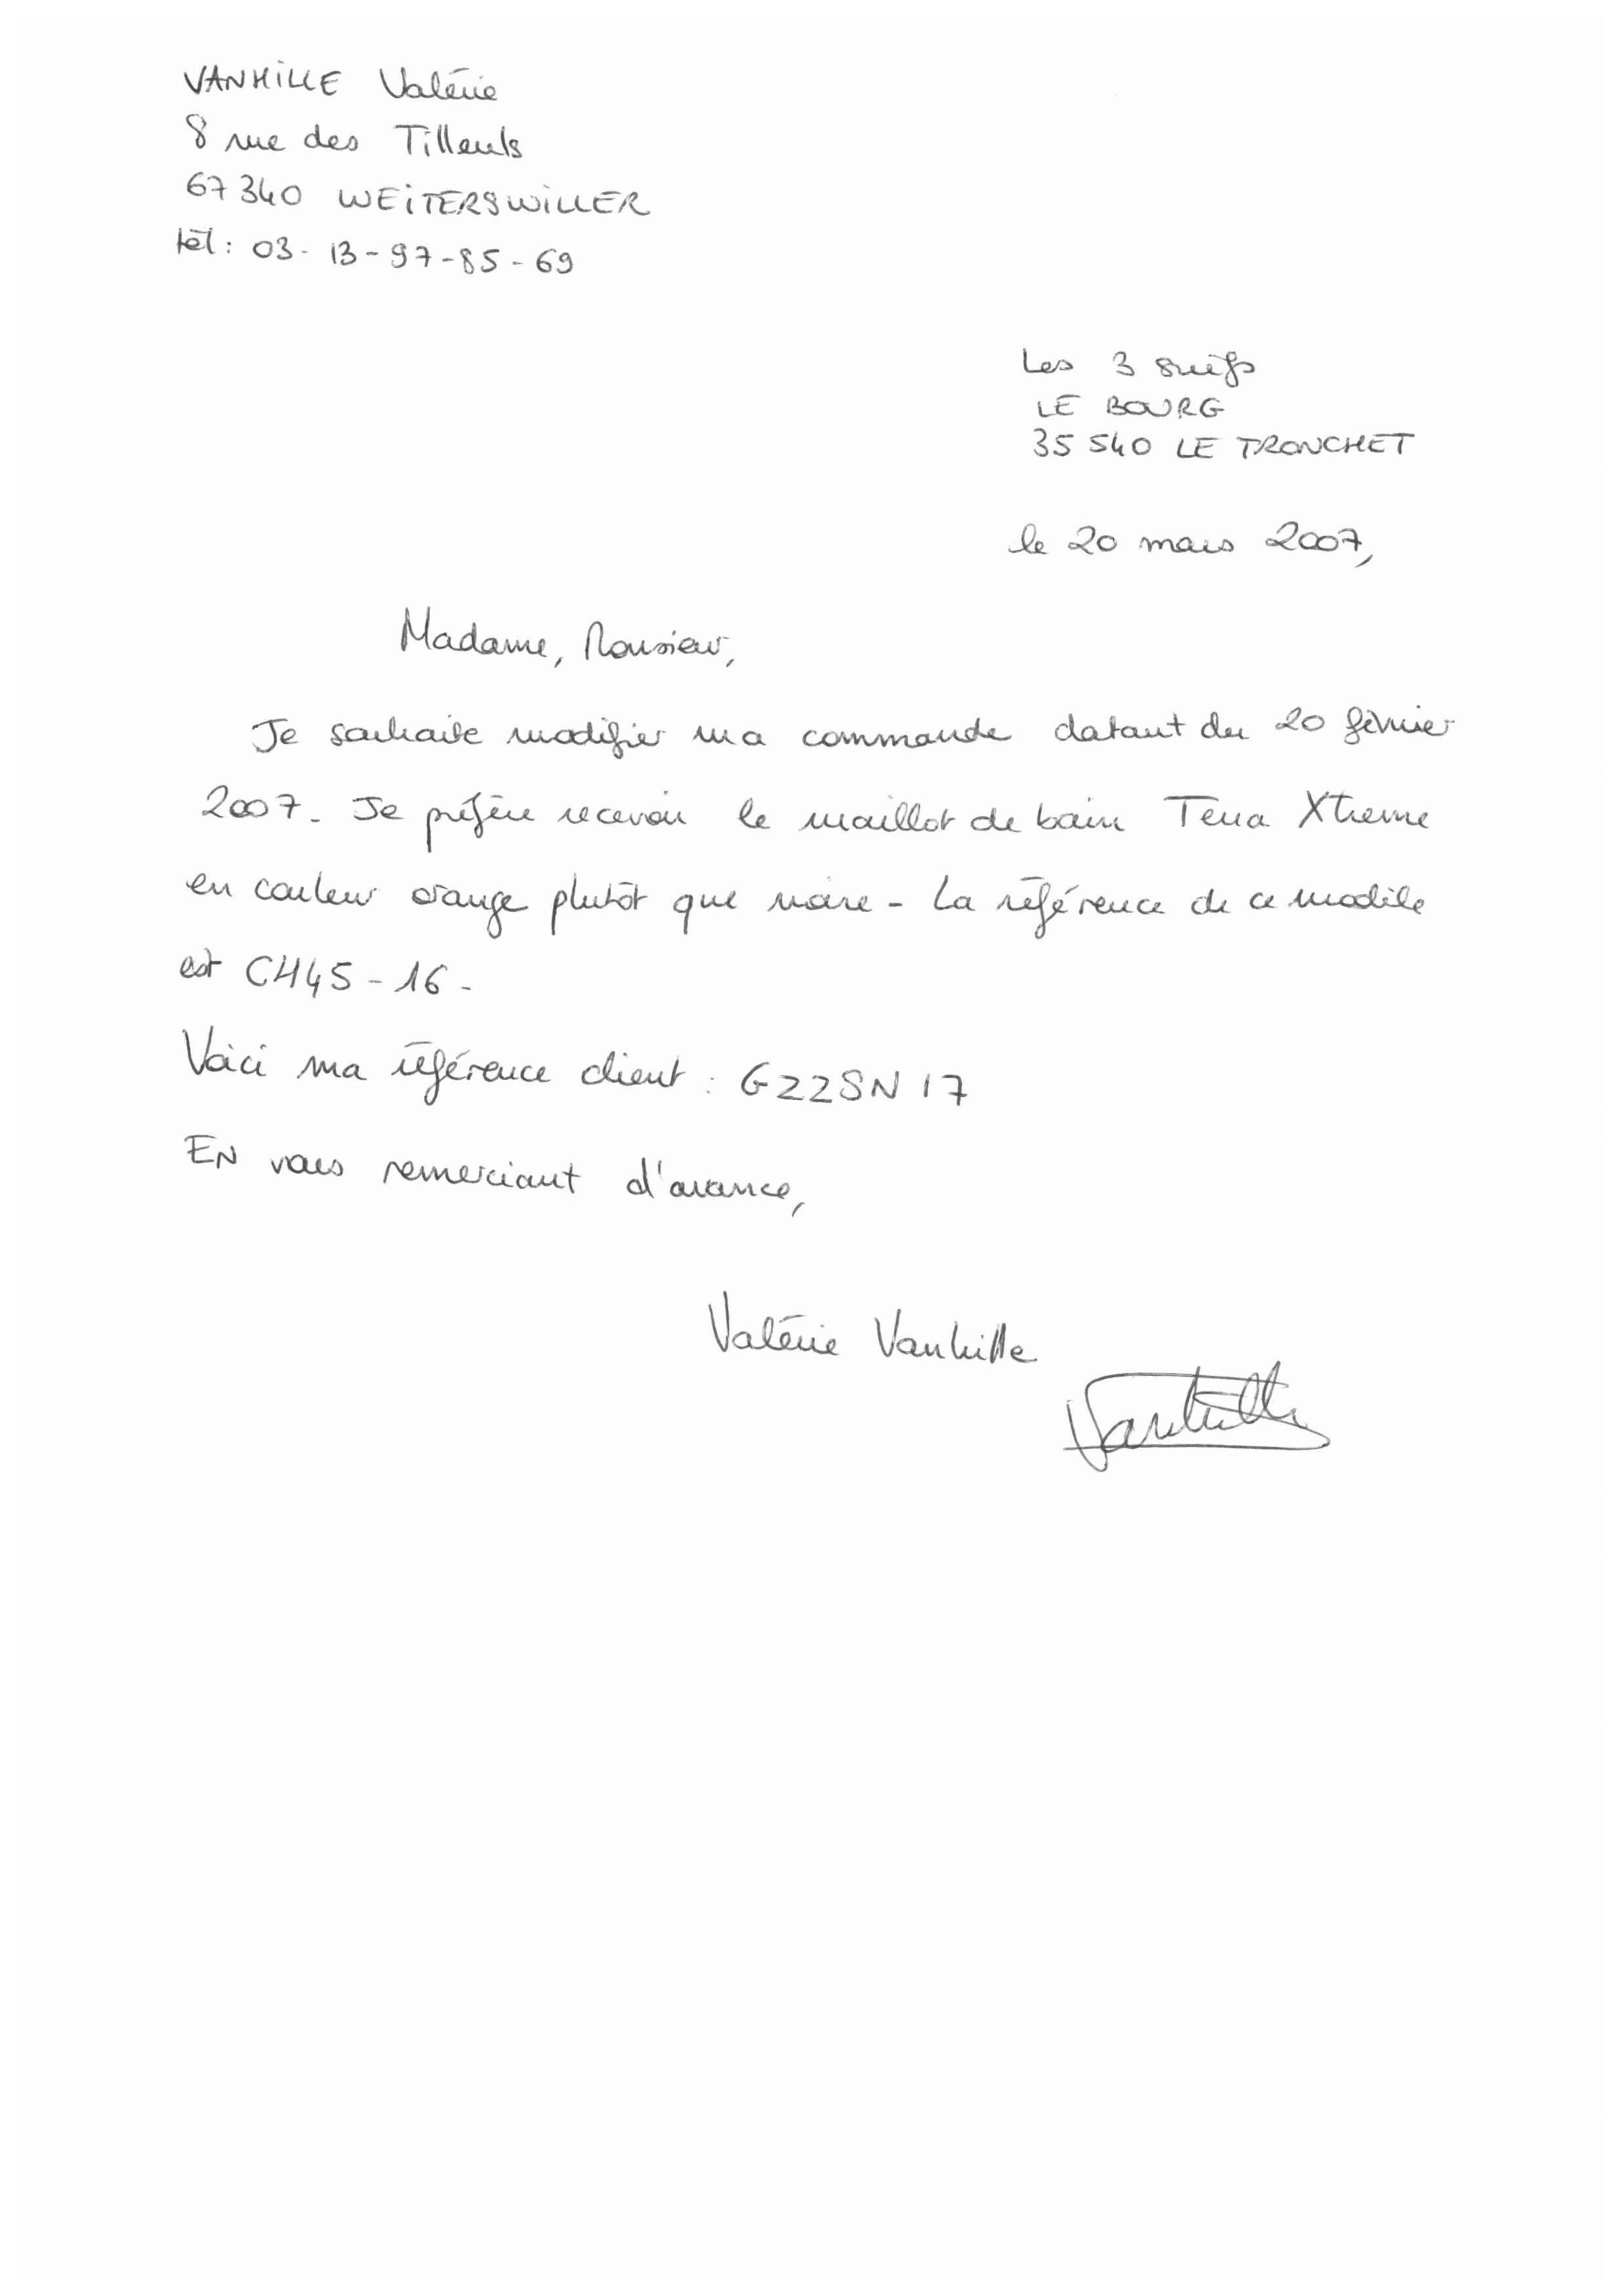 VANHILLE Valérie
8 rue des Tilleuls
67340 WEITERSWILLER
tél : 03-13-97-85-69
Les 3 suifs
LE BOURG
35 540 LE TRONCHET
le 20 mars 2007,
Madame, Monsieur,
Je souhaite modifier ma commande datant du 20 février
2007. Je préfère recevoir le maillot de bain Tena Xtreme
en couleur orange plutôt que noire - La référence de ce modèle
est CH45-16 -
Voici ma référence client : G22SN17
EN vous remerciant d'avance,
Valérie Vanhille
Vanhille